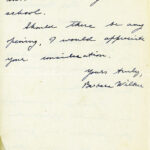 school.
Should there be any
opening, I would appreciate
your consideration.
Yours truly,